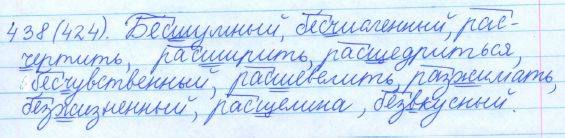 438(424). Бесшумный, бесчисленный, рас-
чертить, расширить, расщедриться,
бесчувственный, расшевелить, разжимать,
безжизненный, расщелина, безвкусный.